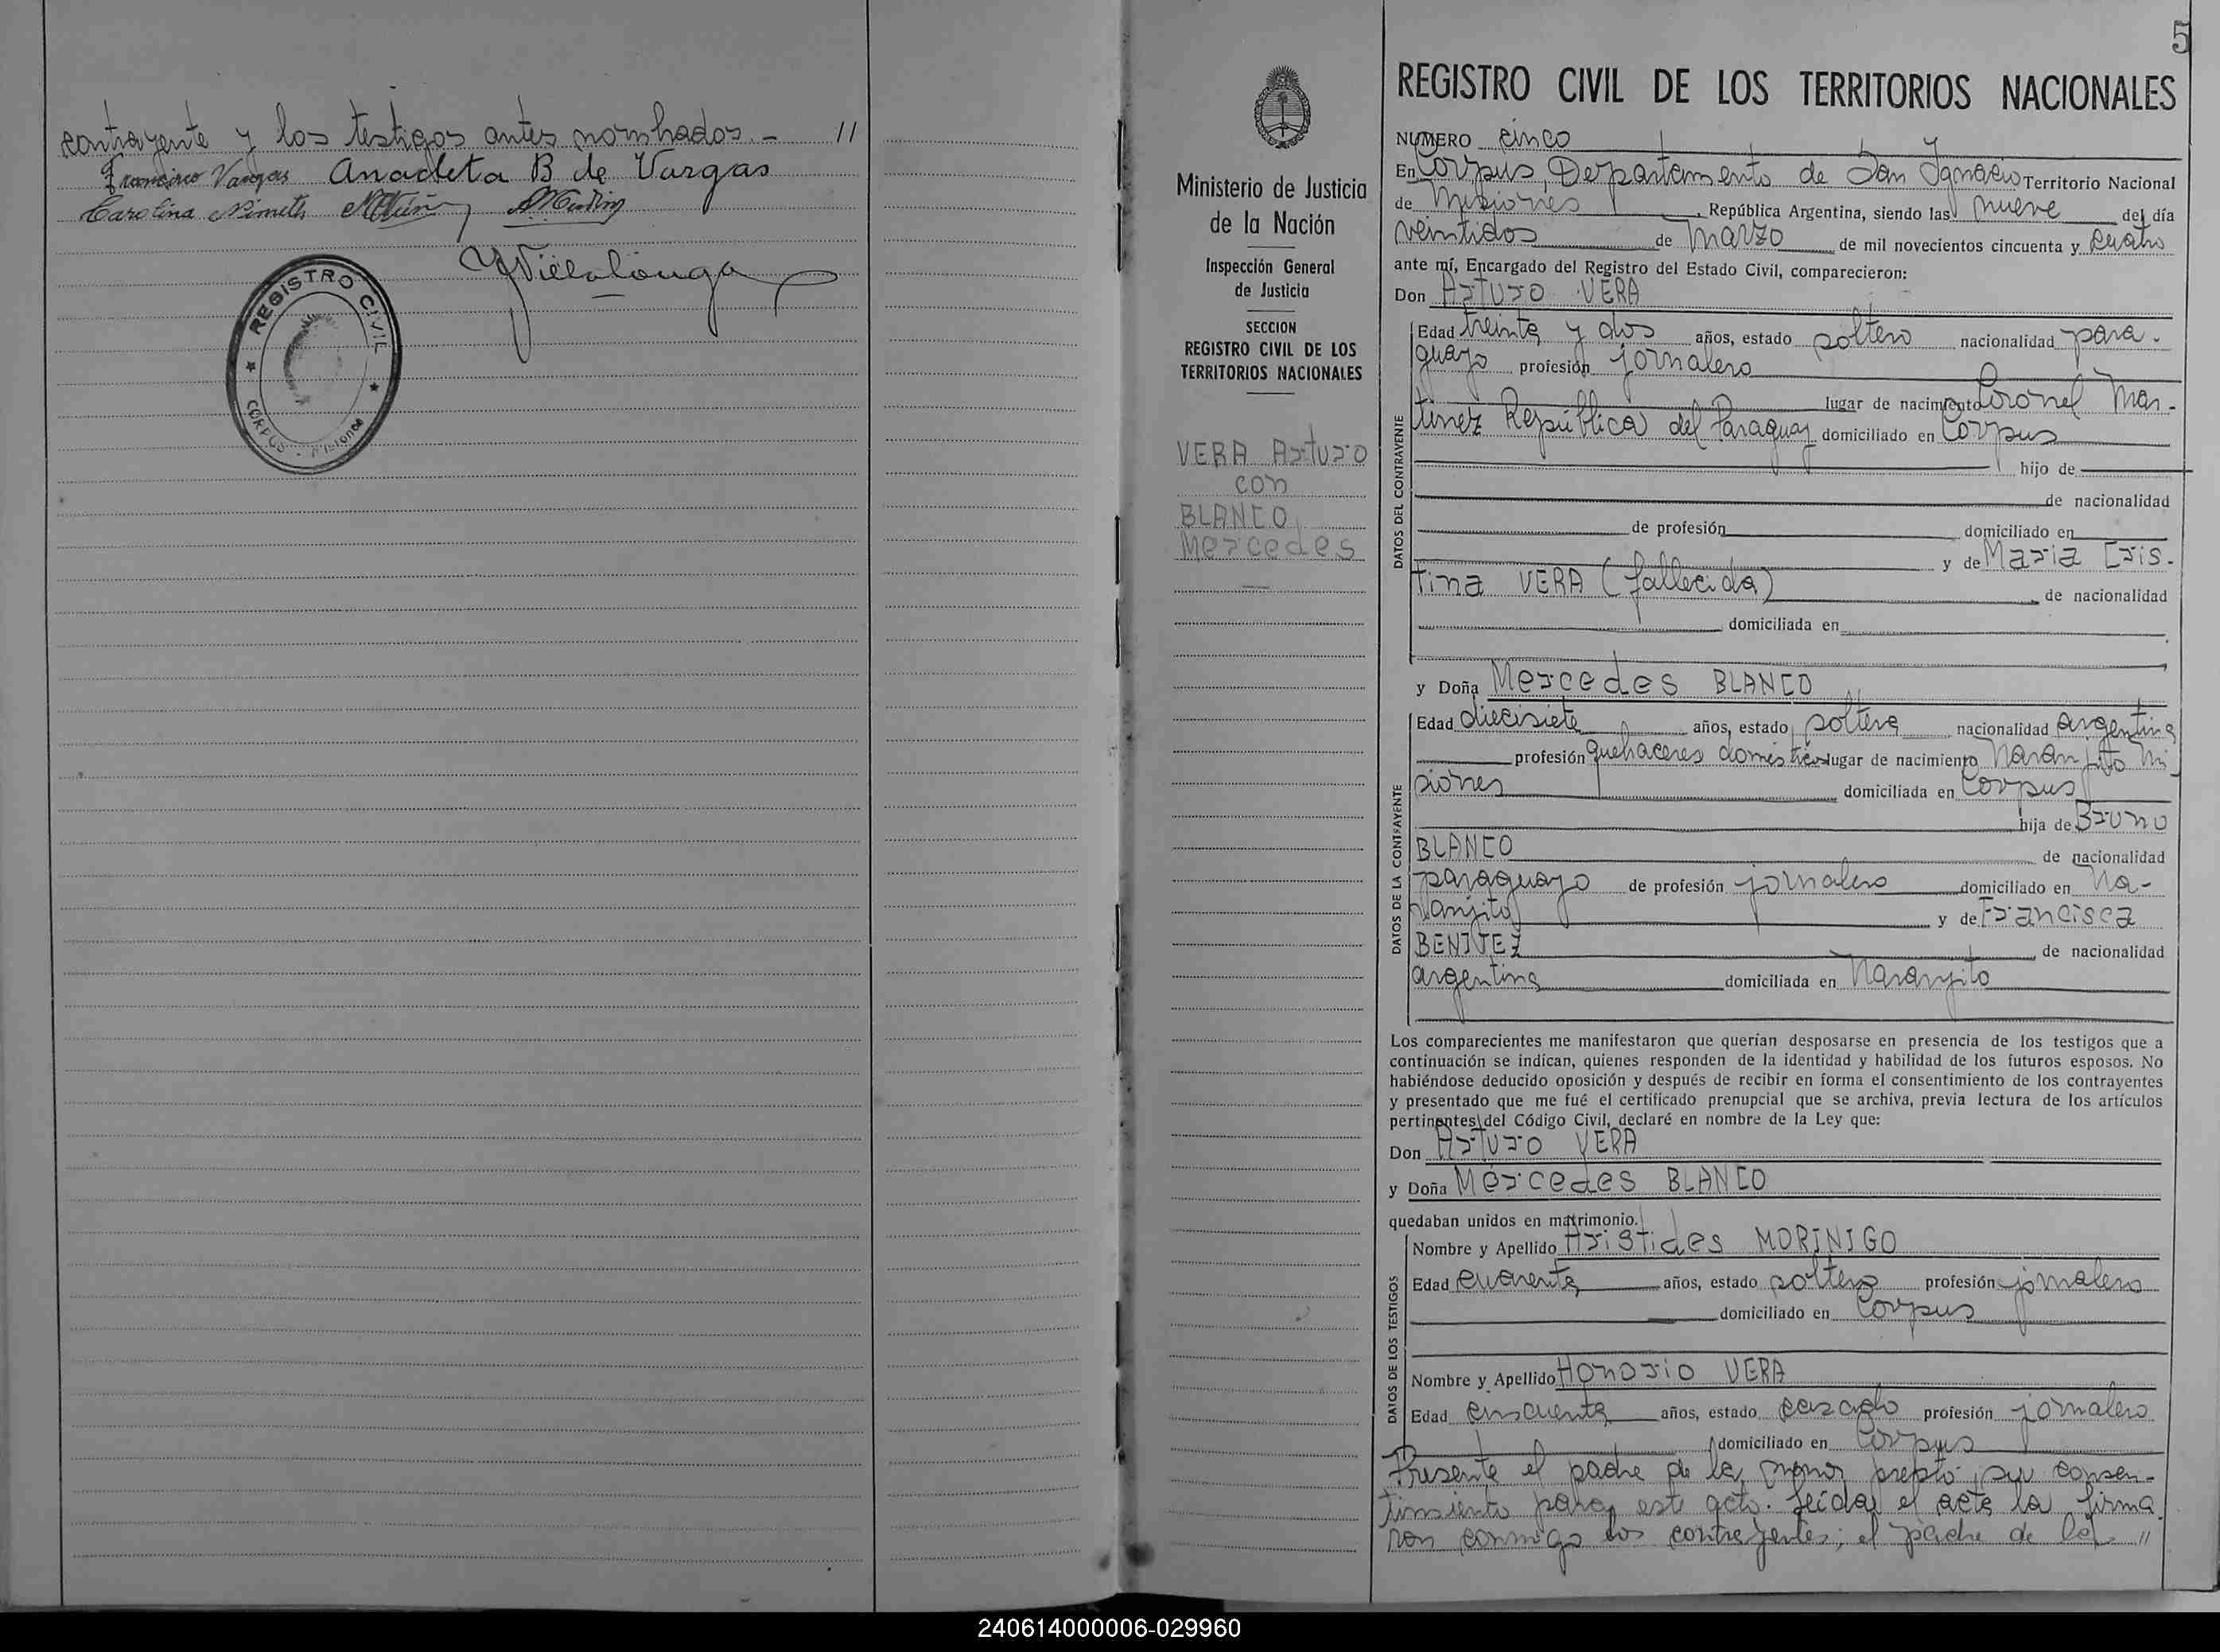 contrayente y los testigos antes nombrados.- //
Francisco Vargas Anacleta B de Vargas
Carolina Nimeth
Villalonga
REGISTRO CIVIL
CORPUS - Misiones
5
Ministerio de Justicia
de la Nación
Inspección General
de Justicia
SECCION
REGISTRO CIVIL DE LOS
TERRITORIOS NACIONALES
VERA Arturo
con
BLANCO
Mercedes
REGISTRO CIVIL DE LOS TERRITORIOS NACIONALES
NUMERO cinco
En Corpus, Departamento de San Ignacio Territorio Nacional
de Misiones, República Argentina, siendo las nueve del día
veintidos de marzo de mil novecientos cincuenta y cuatro
ante mí, Encargado del Registro del Estado Civil, comparecieron:
Don Arturo VERA
DATOS DEL CONTRAYENTE
Edad treinta y dos años, estado soltero nacionalidad para-
guayo profesión jornalero
lugar de nacimiento Coronel Mar-
tinez República del Paraguay domiciliado en Corpus
hijo de
de nacionalidad
de profesión domiciliado en
y de Maria Cris-
tina VERA (fallecida) de nacionalidad
domiciliada en
y Doña Mercedes BLANCO
DATOS DE LA CONTRAYENTE
Edad diecisiete años, estado soltera nacionalidad argentina
profesión quehaceres domésticos lugar de nacimiento Naranjito Mi-
siones domiciliada en Corpus
hija de Bruno
BLANCO de nacionalidad
paraguayo de profesión jornalero domiciliado en Na-
ranjito y de Francisca
BENITEZ de nacionalidad
argentina domiciliada en Naranjito
Los comparecientes me manifestaron que querían desposarse en presencia de los testigos que a
continuación se indican, quienes responden de la identidad y habilidad de los futuros esposos. No
habiéndose deducido oposición y después de recibir en forma el consentimiento de los contrayentes
y presentado que me fué el certificado prenupcial que se archiva, previa lectura de los artículos
pertinentes del Código Civil, declaré en nombre de la Ley que:
Don Arturo VERA
y Doña Mercedes BLANCO
quedaban unidos en matrimonio.
DATOS DE LOS TESTIGOS
Nombre y Apellido Aristides MORINIGO
Edad cuarenta años, estado soltero profesión jornalero
domiciliado en Corpus
Nombre y Apellido Honorio VERA
Edad cincuenta años, estado casado profesión jornalero
domiciliado en Corpus
Presente el padre de la menor prestó su consen-
timiento para este acto. Leida el acta la firma
ron conmigo los contrayentes; el padre de la //
240614000006-029960